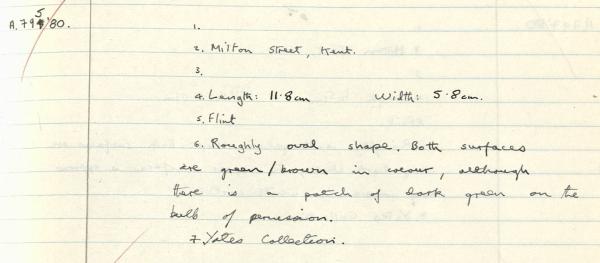 A.795'80.
1.
2. Milton Street, Kent.
3.
4. Length: 11.8cm Width: 5.8cm.
5. Flint
6. Roughly oval shape. Both surfaces
are green/brown in colour, although
there is a patch of dark green on the
bulb of percussion.
7. Yates Collection.